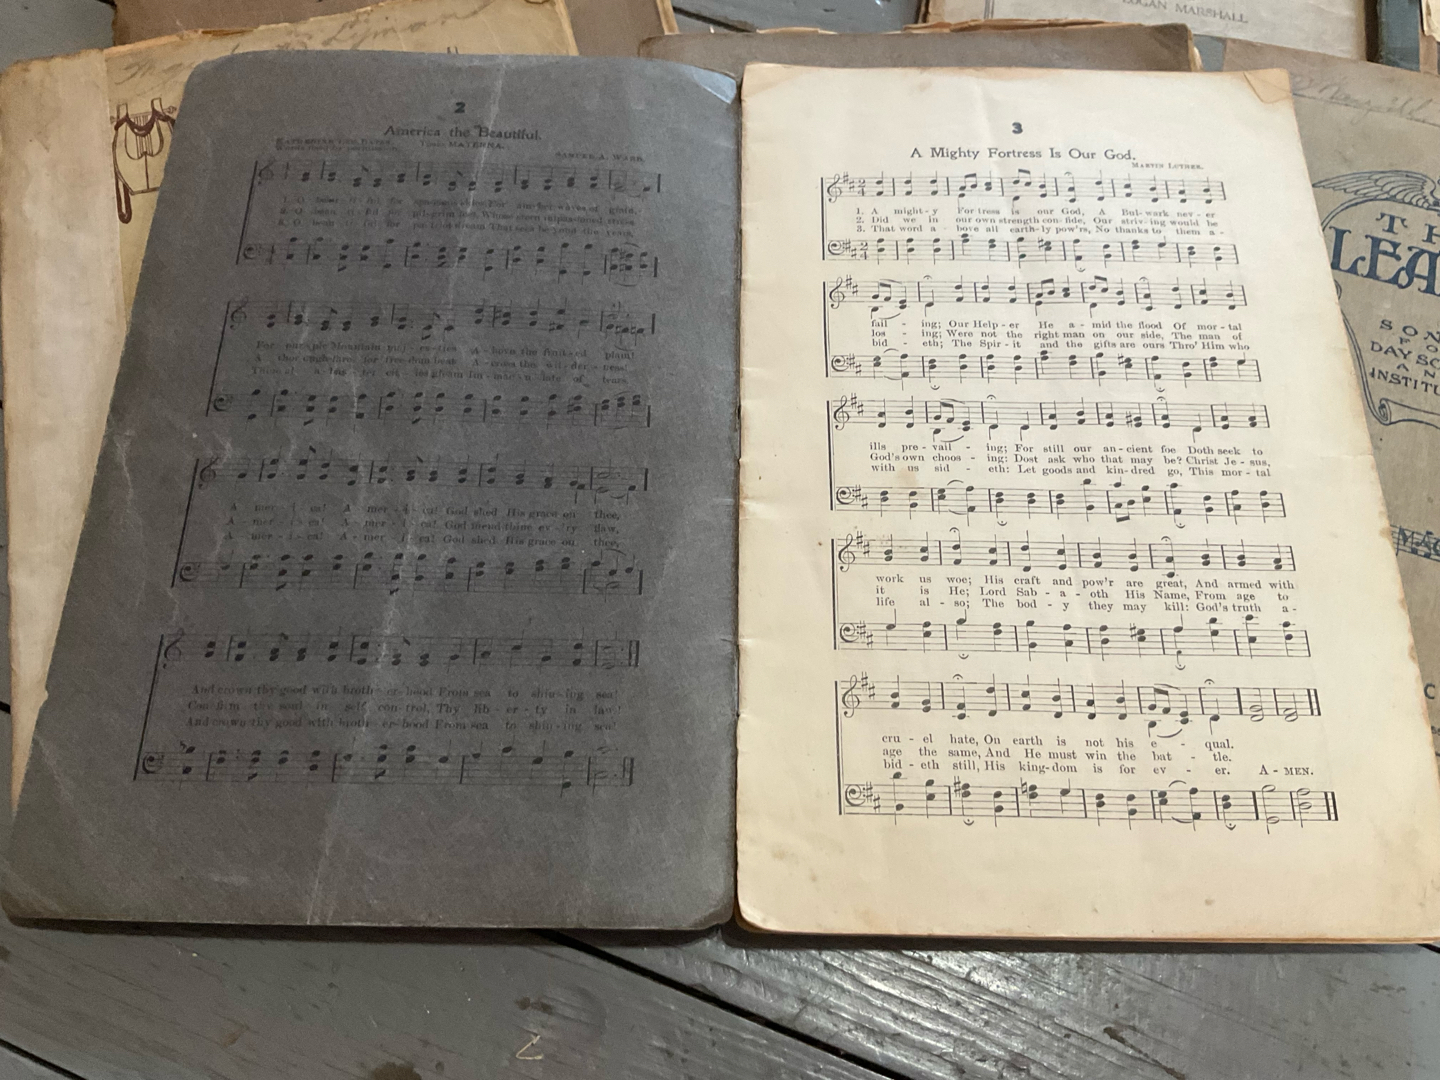 LOGAN MARSHALL
2
America the Beautiful.
KATHERINE LEE BATES.
Tune: MATERNA.
SAMUEL A. WARD.
1. O beau - ti - ful for spacious skies, For am-ber waves of grain,
2. O beau - ti - ful for pilgrim feet, Whose stern impassioned stress
3. O beau - ti - ful for dream That sees be-yond the years,
For pur-ple Mountain maj - es-ties A - bove the fruit-ed plain!
A thor-oughfare for free-dom beat A-cross the wil-der - ness!
Thine al - a - bas - ter cit - ies gleam Un - dimmed by hu - man tears
A - mer - i - ca! A - mer - i - ca! God shed His grace on thee,
A - mer - i - ca! A - mer - i - ca! God mend thine ev - 'ry flaw,
A - mer - i - ca! A - mer - i - ca! God shed His grace on thee,
And crown thy good with broth - er-hood From sea to shin-ing sea!
Con-firm thy soul in self con-trol, Thy lib - er - ty in law!
And crown thy good with broth - er-hood From sea to shin-ing sea!
3
A Mighty Fortress Is Our God.
MARTIN LUTHER.
1. A might-y For-tress is our God, A Bul-wark nev - er
2. Did we in our own strength con-fide, Our striv-ing would be
3. That word a - bove all earth-ly pow'rs, No thanks to them a -
fail - ing; Our Help - er He a - mid the flood Of mor - tal
los - ing; Were not the right man on our side, The man of
bid - eth; The Spir - it and the gifts are ours Thro' Him who
ills pre - vail - ing; For still our an-cient foe Doth seek to
God's own choos - ing: Dost ask who that may be? Christ Je - sus,
with us sid - eth: Let goods and kin-dred go, This mor - tal
work us woe; His craft and pow'r are great, And armed with
it is He; Lord Sab - a - oth His Name, From age to
life al - so; The bod - y they may kill: God's truth a -
cru - el hate, On earth is not his e - qual.
age the same, And He must win the bat - tle.
bid - eth still, His king-dom is for ev - er. A - MEN.
TH
LEA
SON
FO
DAY SC
AN
INSTITU
MAC
C